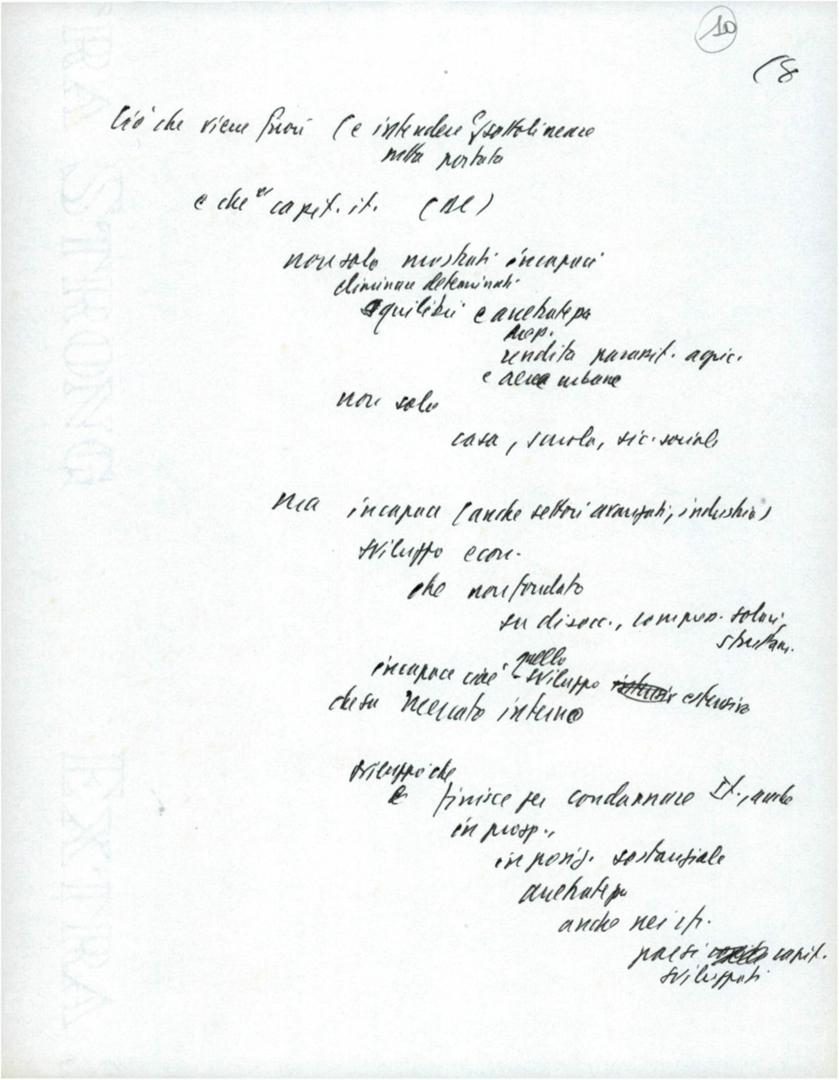 10
18
Ciò che viene fuori (e intendere sottolineare
nella portata
è che capit. it. (DC)
non solo mostrati incapaci
eliminare determinati
squilibri e arretratezza
rendita parassit. agric.
e aree urbane
non solo
casa, scuola, sic. sociale
ma incapace (anche settori avanzati, industria)
sviluppo econ.
che non fondato
su disocc., compres. salari,
sfruttam.
incapace cioè quello sviluppo estensivo
mercato interno
sviluppo che
finisce per condannare It., anche
in prosp.,
in posiz. sostanziale
arretratezza
anche nei cfr.
paesi capit.
sviluppati
EXTRA STRONG